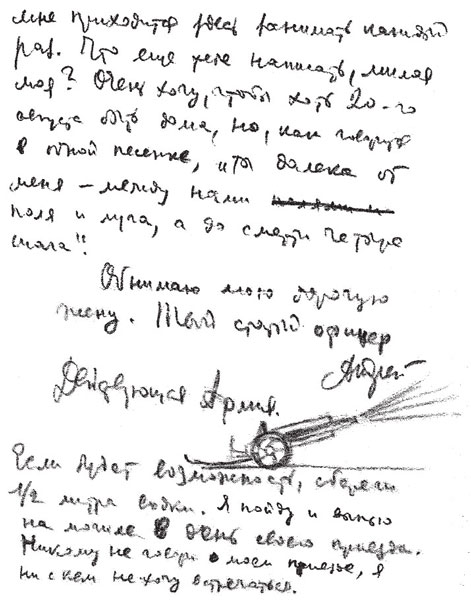 мне приходится здесь занимать каждый
раз. Что еще тебе написать, милая
моя? Очень хочу, чтобы хоть 20-го
августа быть дома, но, как говорится
в одной песенке, "ты далека от
меня – между нами
поля и луга, а до смерти четыре
шага"!
Обнимаю мою дорогую
жену. Твой старый офицер
Андрей
Действующая Армия.
Если будет возможность, сбереги
1/2 литра водки. Я пойду и выпью
на могиле в день своего приезда.
Никому не говори о моем приезде, я
ни с кем не хочу встречаться.